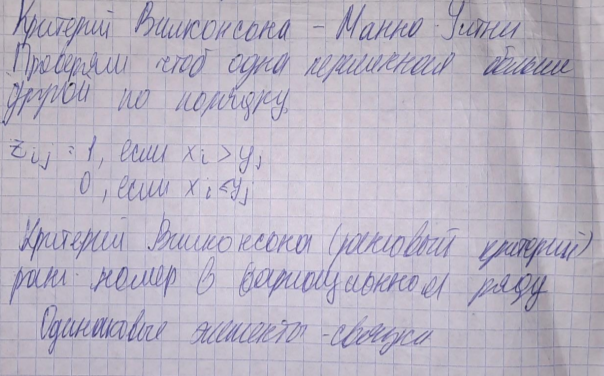 Критерий Вилкоксона - Манна-Уитни
Проверяли чтоб одна переменная больше
другой по порядку
z_ij = 1, если x_i > y_j
0, если x_i ≤ y_j
Критерий Вилкоксона (ранговый критерий)
ранг - номер в вариационном ряду
Одинаковые элементы - связки